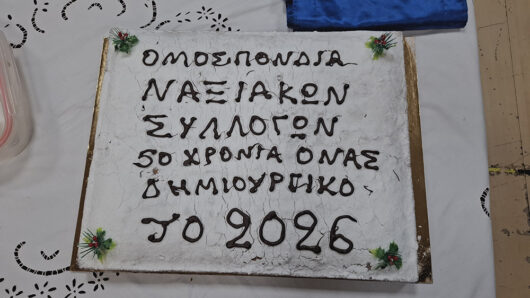 ΟΜΟΣΠΟΝΔΙΑ
ΝΑΞΙΑΚΩΝ
ΣΥΛΛΟΓΩΝ
50 ΧΡΟΝΙΑ ΟΝΑΣ
ΔΗΜΙΟΥΡΓΙΚΟ
ΤΟ 2026